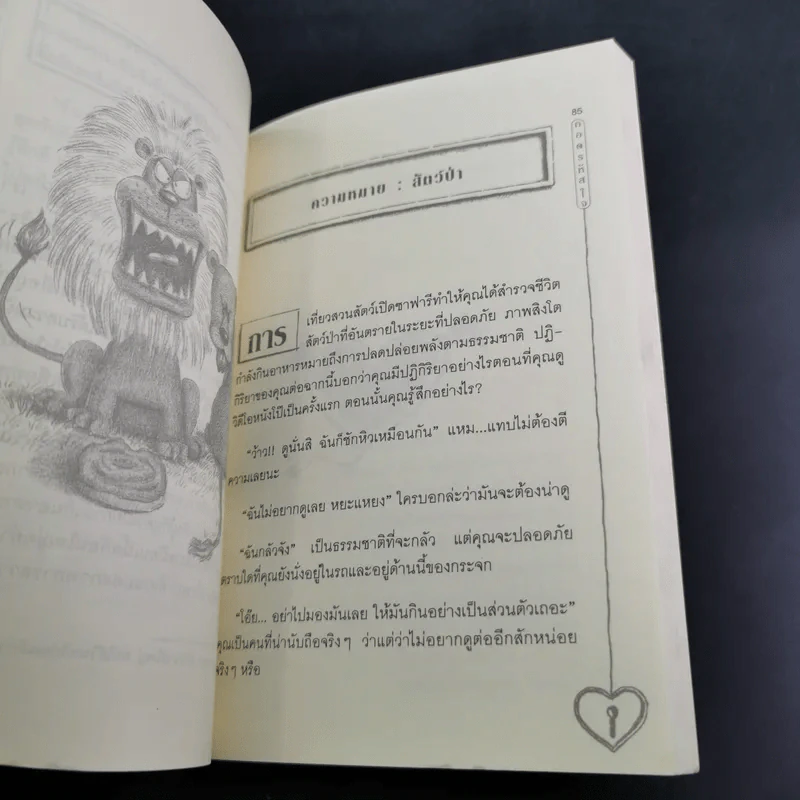 85
ถอดรหัสใจ
ความหมาย : สัตว์ป่า
การ เที่ยวสวนสัตว์เปิดซาฟารีทำให้คุณได้สำรวจชีวิต
สัตว์ป่าที่อันตรายในระยะที่ปลอดภัย ภาพสิงโต
กำลังกินอาหารหมายถึงการปลดปล่อยพลังตามธรรมชาติ ปฏิ-
กิริยาของคุณต่อฉากนี้บอกว่าคุณมีปฏิกิริยาอย่างไรตอนที่คุณดู
วิดีโอหนังโป๊เป็นครั้งแรก ตอนนั้นคุณรู้สึกอย่างไร?
"ว้าว!! ดูนั่นสิ ฉันก็ชักหิวเหมือนกัน" แหม...แทบไม่ต้องตี
ความเลยนะ
"ฉันไม่อยากดูเลย หยะแหยง" ใครบอกล่ะว่ามันจะต้องน่าดู
"ฉันกลัวจัง" เป็นธรรมชาติที่จะกลัว แต่คุณจะปลอดภัย
ตราบใดที่คุณยังนั่งอยู่ในรถและอยู่ด้านนี้ของกระจก
"โอ๊ย... อย่าไปมองมันเลย ให้มันกินอย่างเป็นส่วนตัวเถอะ"
คุณเป็นคนที่น่านับถือจริงๆ ว่าแต่ว่าไม่อยากดูต่ออีกสักหน่อย
จริงๆ หรือ